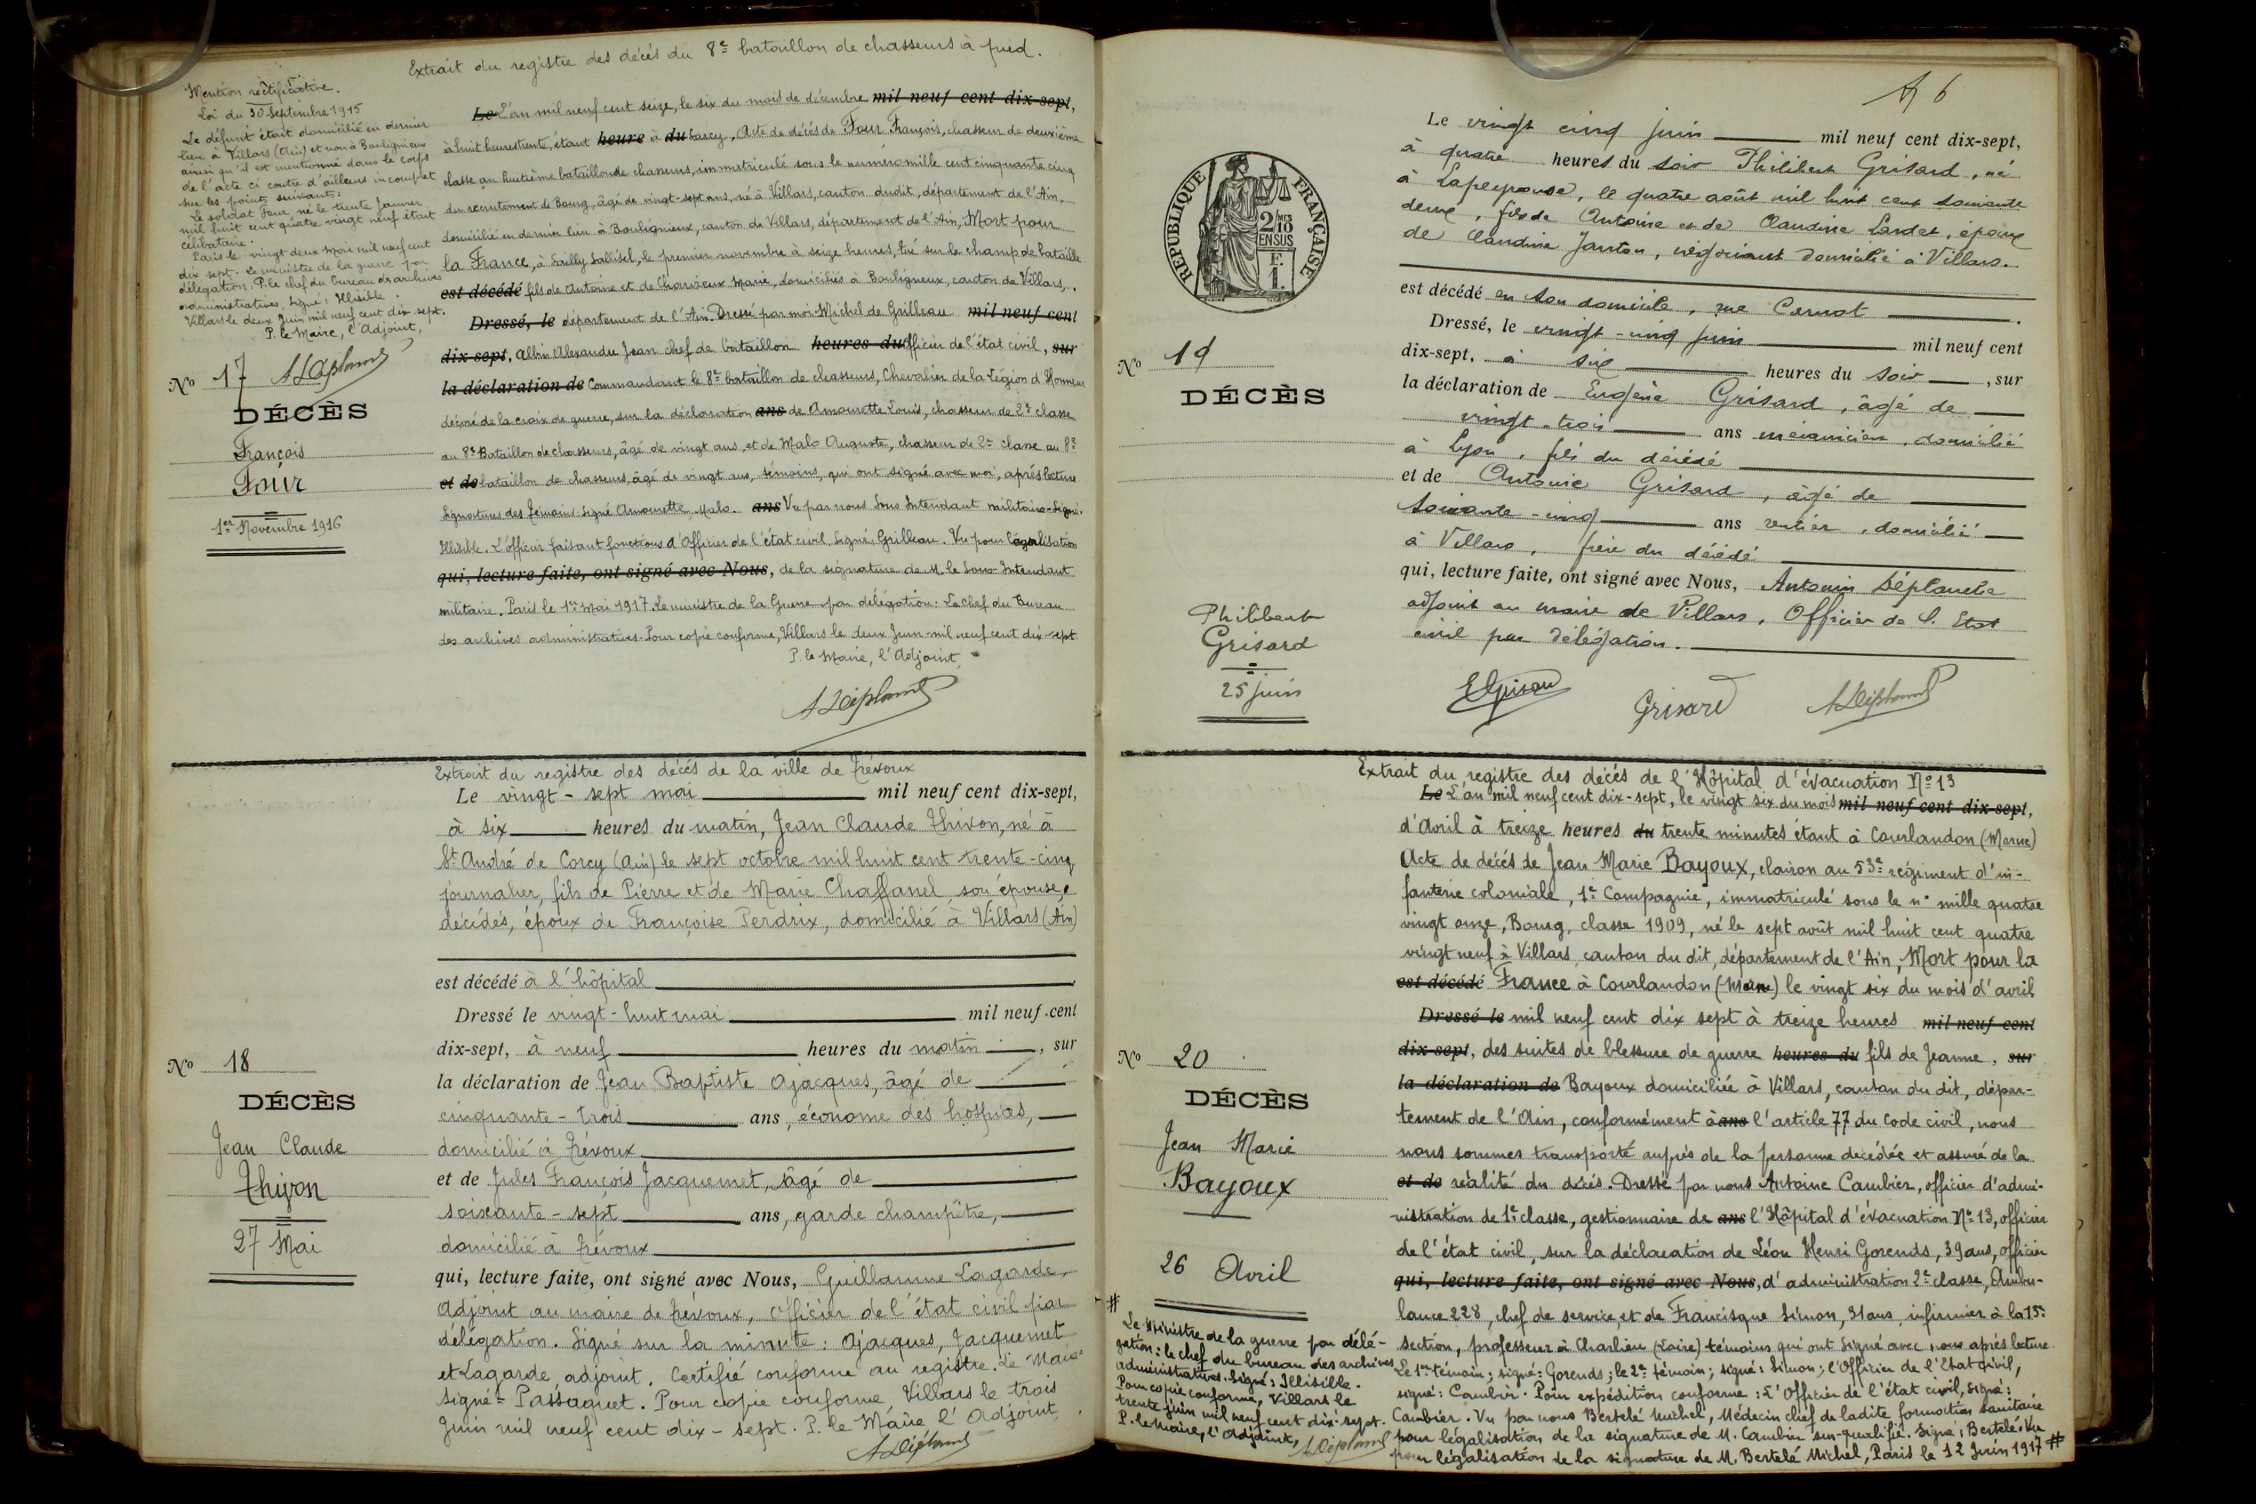 Extrait du registre des décés du 8e bataillon de chasseurs à pied.
Mention rectificative.
Loi du 30 Septembre 1915
Le défunt était domicilié en dernier
lieu à Villars (Ain) et non à Bouligneux
ainsi qu'il est mentionné dans le corps
de l'acte ci contre d'ailleurs incomplet
sur les points suivants:
Le soldat Four, né le trente Janvier
mil huit cent quatre vingt neuf était
célibataire.
Paris le vingt deux Mai mil neuf cent
dix sept. Le ministre de la guerre par
délégation: P. le chef du bureau des archives
administratives, Signé: Illisible.
Villars le deux Juin mil neuf cent dix sept.
P. le Maire, l'Adjoint,
A Déplanche
No 17
DÉCÈS
François
Four
1er Novembre 1916
Le L'an mil neuf cent seize, le six du mois de décembre mil neuf cent dix-sept,
à huit heures trente, étant heure à du Curcy, Acte de décés de Four François, chasseur de deuxième
classe au huitième bataillon de chasseurs, immatriculé sous le numéro mille cent cinquante cinq
du recrutement de Bourg, âgé de vingt-sept ans, né à Villars, canton dudit, département de l'Ain,
domicilié en dernier lieu à Bouligneux, canton de Villars, département de l'Ain, Mort pour
la France, à Sailly Saillisel, le premier novembre à seize heures, tué sur le champ de bataille
est décédé fils de Antoine et de Charvieux Marie, domiciliés à Bouligneux, canton de Villars,
Dressé, le département de l'Ain. Dressé par moi Michel de Grilleau mil neuf cent
dix-sept, Albin Alexandre Jean chef de bataillon heures du Officier de l'état civil, sur
la déclaration de Commandant le 8e bataillon de chasseurs, Chevalier de la Légion d'Honneur
décoré de la croix de guerre, sur la déclaration ans de Amourette Louis, chasseur de 2e classe
au 8e Bataillon de chasseurs, âgé de vingt ans, et de Malo Auguste, chasseur de 2e classe au 8e
et de bataillon de chasseurs, âgé de vingt ans, témoins, qui ont signé avec moi, après lecture
Signatures des témoins. Signé Amourette, Malo. ans Vu par nous Sous Intendant militaire. Signé:
Illisible. L'officier faisant fonctions d'Officier de l'état civil. Signé, Grilleau. Vu pour légalisation
qui, lecture faite, ont signé avec Nous, de la signature de M. le Sous-Intendant
militaire. Paris le 1er Mai 1917. Le ministre de la Guerre par délégation: Le chef du Bureau
des archives administratives. Pour copie conforme, Villars le deux Juin mil neuf cent dix-sept
P. le Maire, l'Adjoint,
A Déplanche
Extrait du registre des décés de la ville de Trévoux
No 18
DÉCÈS
Jean Claude
Thivon
27 Mai
Le vingt-sept mai mil neuf cent dix-sept,
à six heures du matin, Jean Claude Thivon, né à
St André de Corcy (Ain) le sept octobre mil huit cent trente-cinq
journalier, fils de Pierre et de Marie Chaffanel, son épouse,
décédés, époux de Françoise Perdrix, domicilié à Villars (Ain)
est décédé à l'hôpital
Dressé le vingt-huit mai mil neuf cent
dix-sept, à neuf heures du matin, sur
la déclaration de Jean Baptiste Ajacques, âgé de
cinquante-trois ans, économe des hospices,
domicilié à Trévoux
et de Jules François Jacquemet, âgé de
soixante-sept ans, garde champêtre,
domicilié à Trévoux
qui, lecture faite, ont signé avec Nous, Guillaume Lagarde,
Adjoint au maire de Trévoux, officier de l'état civil par
délégation. Signé sur la minute: Ajacques, Jacquemet
et Lagarde, adjoint. Certifié conforme au registre. Le Maire
signé = Passaquet. Pour copie conforme, Villars le trois
Juin mil neuf cent dix-sept. P. le Maire l'Adjoint,
A Déplanche
46
RÉPUBLIQUE FRANÇAISE
2/10 MES
EN SUS
F.
1.
No 19
DÉCÈS
Philibert
Grisard
25 juin
Le vingt cinq juin mil neuf cent dix-sept,
à quatre heures du soir Philibert Grisard, né
à Lapeyrouse, le quatre août mil huit cent soixante
deux, fils de Antoine et de Claudine Lardet, époux
de Claudine Janton, négociant domicilié à Villars.
est décédé en son domicile, rue Carnot
Dressé, le vingt-cinq juin mil neuf cent
dix-sept, à six heures du soir, sur
la déclaration de Eugène Grisard, âgé de
vingt-trois ans mécanicien, domicilié
à Lyon, fils du décédé
et de Antoine Grisard, âgé de
soixante-cinq ans rentier, domicilié
à Villars, frère du décédé
qui, lecture faite, ont signé avec Nous, Antonin Déplanche
adjoint au maire de Villars, Officier de l'Etat
civil par délégation.
E Grisard Grisard A Déplanche
Extrait du registre des décés de l'Hôpital d'évacuation No 13
No 20
DÉCÈS
Jean Marie
Bayoux
26 Avril
Le L'an mil neuf cent dix-sept, le vingt six du mois mil neuf cent dix-sept,
d'Avril à treize heures du trente minutes étant à Courlandon (Marne)
Acte de décés de Jean Marie Bayoux, clairon au 53e régiment d'in-
fanterie coloniale, 1e Compagnie, immatriculé sous le n° mille quatre
vingt onze, Bourg, classe 1909, né le sept août mil huit cent quatre
vingt neuf à Villars, canton du dit, département de l'Ain, Mort pour la
est décédé France à Courlandon (Marne) le vingt six du mois d'avril
Dressé le mil neuf cent dix sept à treize heures mil neuf cent
dix-sept, des suites de blessure de guerre heures du fils de Jeanne, sur
la déclaration de Bayoux domiciliée à Villars, canton du dit, dépar-
tement de l'Ain, conformément à ans l'article 77 du Code civil, nous
nous sommes transporté auprès de la personne décédée et assuré de la
et de réalité du décés. Dressé par nous Antoine Cambier, officier d'admi-
nistration de 1e classe, gestionnaire de ans l'Hôpital d'évacuation No 13, officier
de l'état civil, sur la déclaration de Léon Henri Gorends, 39 ans, officier
qui, lecture faite, ont signé avec Nous, d'administration 2e classe, Ambu-
lance 228, chef de service, et de Francisque Simon, 31 ans, infirmier à la 13e
section, professeur à Charlieu (Loire) témoins qui ont signé avec nous après lecture
Le 1er témoin; signé: Gorends; le 2e témoin; signé: Simon; l'Officier de l'Etat civil,
signé: Cambier. Pour expédition conforme: L'Officier de l'état civil, signé:
Cambier. Vu par nous Bertelé Michel, Médecin chef de ladite formation sanitaire
pour légalisation de la signature de M. Cambier sus-qualifié. Signé, Bertelé. Vu
pour légalisation de la signature de M. Bertelé Michel, Paris le 12 Juin 1917 #
#
Le Ministre de la guerre par délé-
gation: le chef du bureau des archives
administratives. Signé: Illisible.
Pour copie conforme, Villars le
trente juin mil neuf cent dix-sept.
P. le Maire, l'Adjoint, A Déplanche